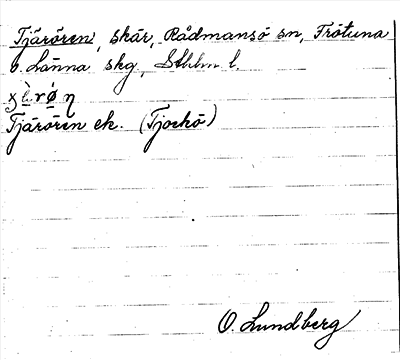 Tjärören, skär, Rådmansö sn, Frötuna
o. Länna skg, Sthlm l.
Tjärören ek. (Tjockö)
O. Lundberg